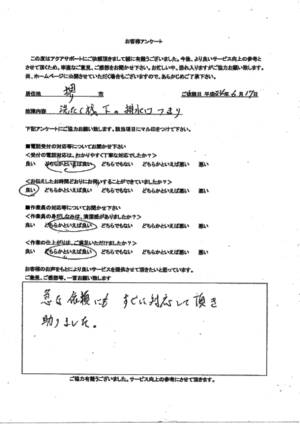 お客様アンケート
この度はアクアサポートにご依頼頂きまして誠に有難うございました。今後、より良いサービス向上の参考と
させて頂くため、率直なご意見、ご感想をお聞かせ下さい。お忙しい中、恐れ入りますがご協力お願い致します。
尚、ホームページに公開させていただく場合もございますので、あらかじめご了承下さい。
居住地 堺 市 ご依頼日 平成24年6月17日
依頼内容 洗たく機下の排水口つまり
下記アンケートにご協力お願い致します。該当項目にマル印をつけて下さい。
■電話受付の対応等についてお聞かせ下さい
<受付の電話対応は、わかりやすく丁寧な対応でしたか?>
良い どちらかといえば良い どちらでもない どちらかといえば悪い 悪い
<お伝えしたお時間どおりにお伺いすることができていましたか?>
良い どちらかといえば良い どちらでもない どちらかといえば悪い 悪い
■作業員の対応等についてお聞かせ下さい
<作業員の身だしなみは、清潔感がありましたか?>
良い どちらかといえば良い どちらでもない どちらかといえば悪い 悪い
<作業の仕上がりは、ご満足いただけましたか?>
良い どちらかといえば良い どちらでもない どちらかといえば悪い 悪い
お客様のお声をもとにより良いサービスを提供させて頂きたいと思っています。
ご意見、ご感想等、一言お願い致します
急な依頼にも すぐに対応して頂き
助りました。
ご協力有難うございました。サービス向上の参考にさせて頂きます。